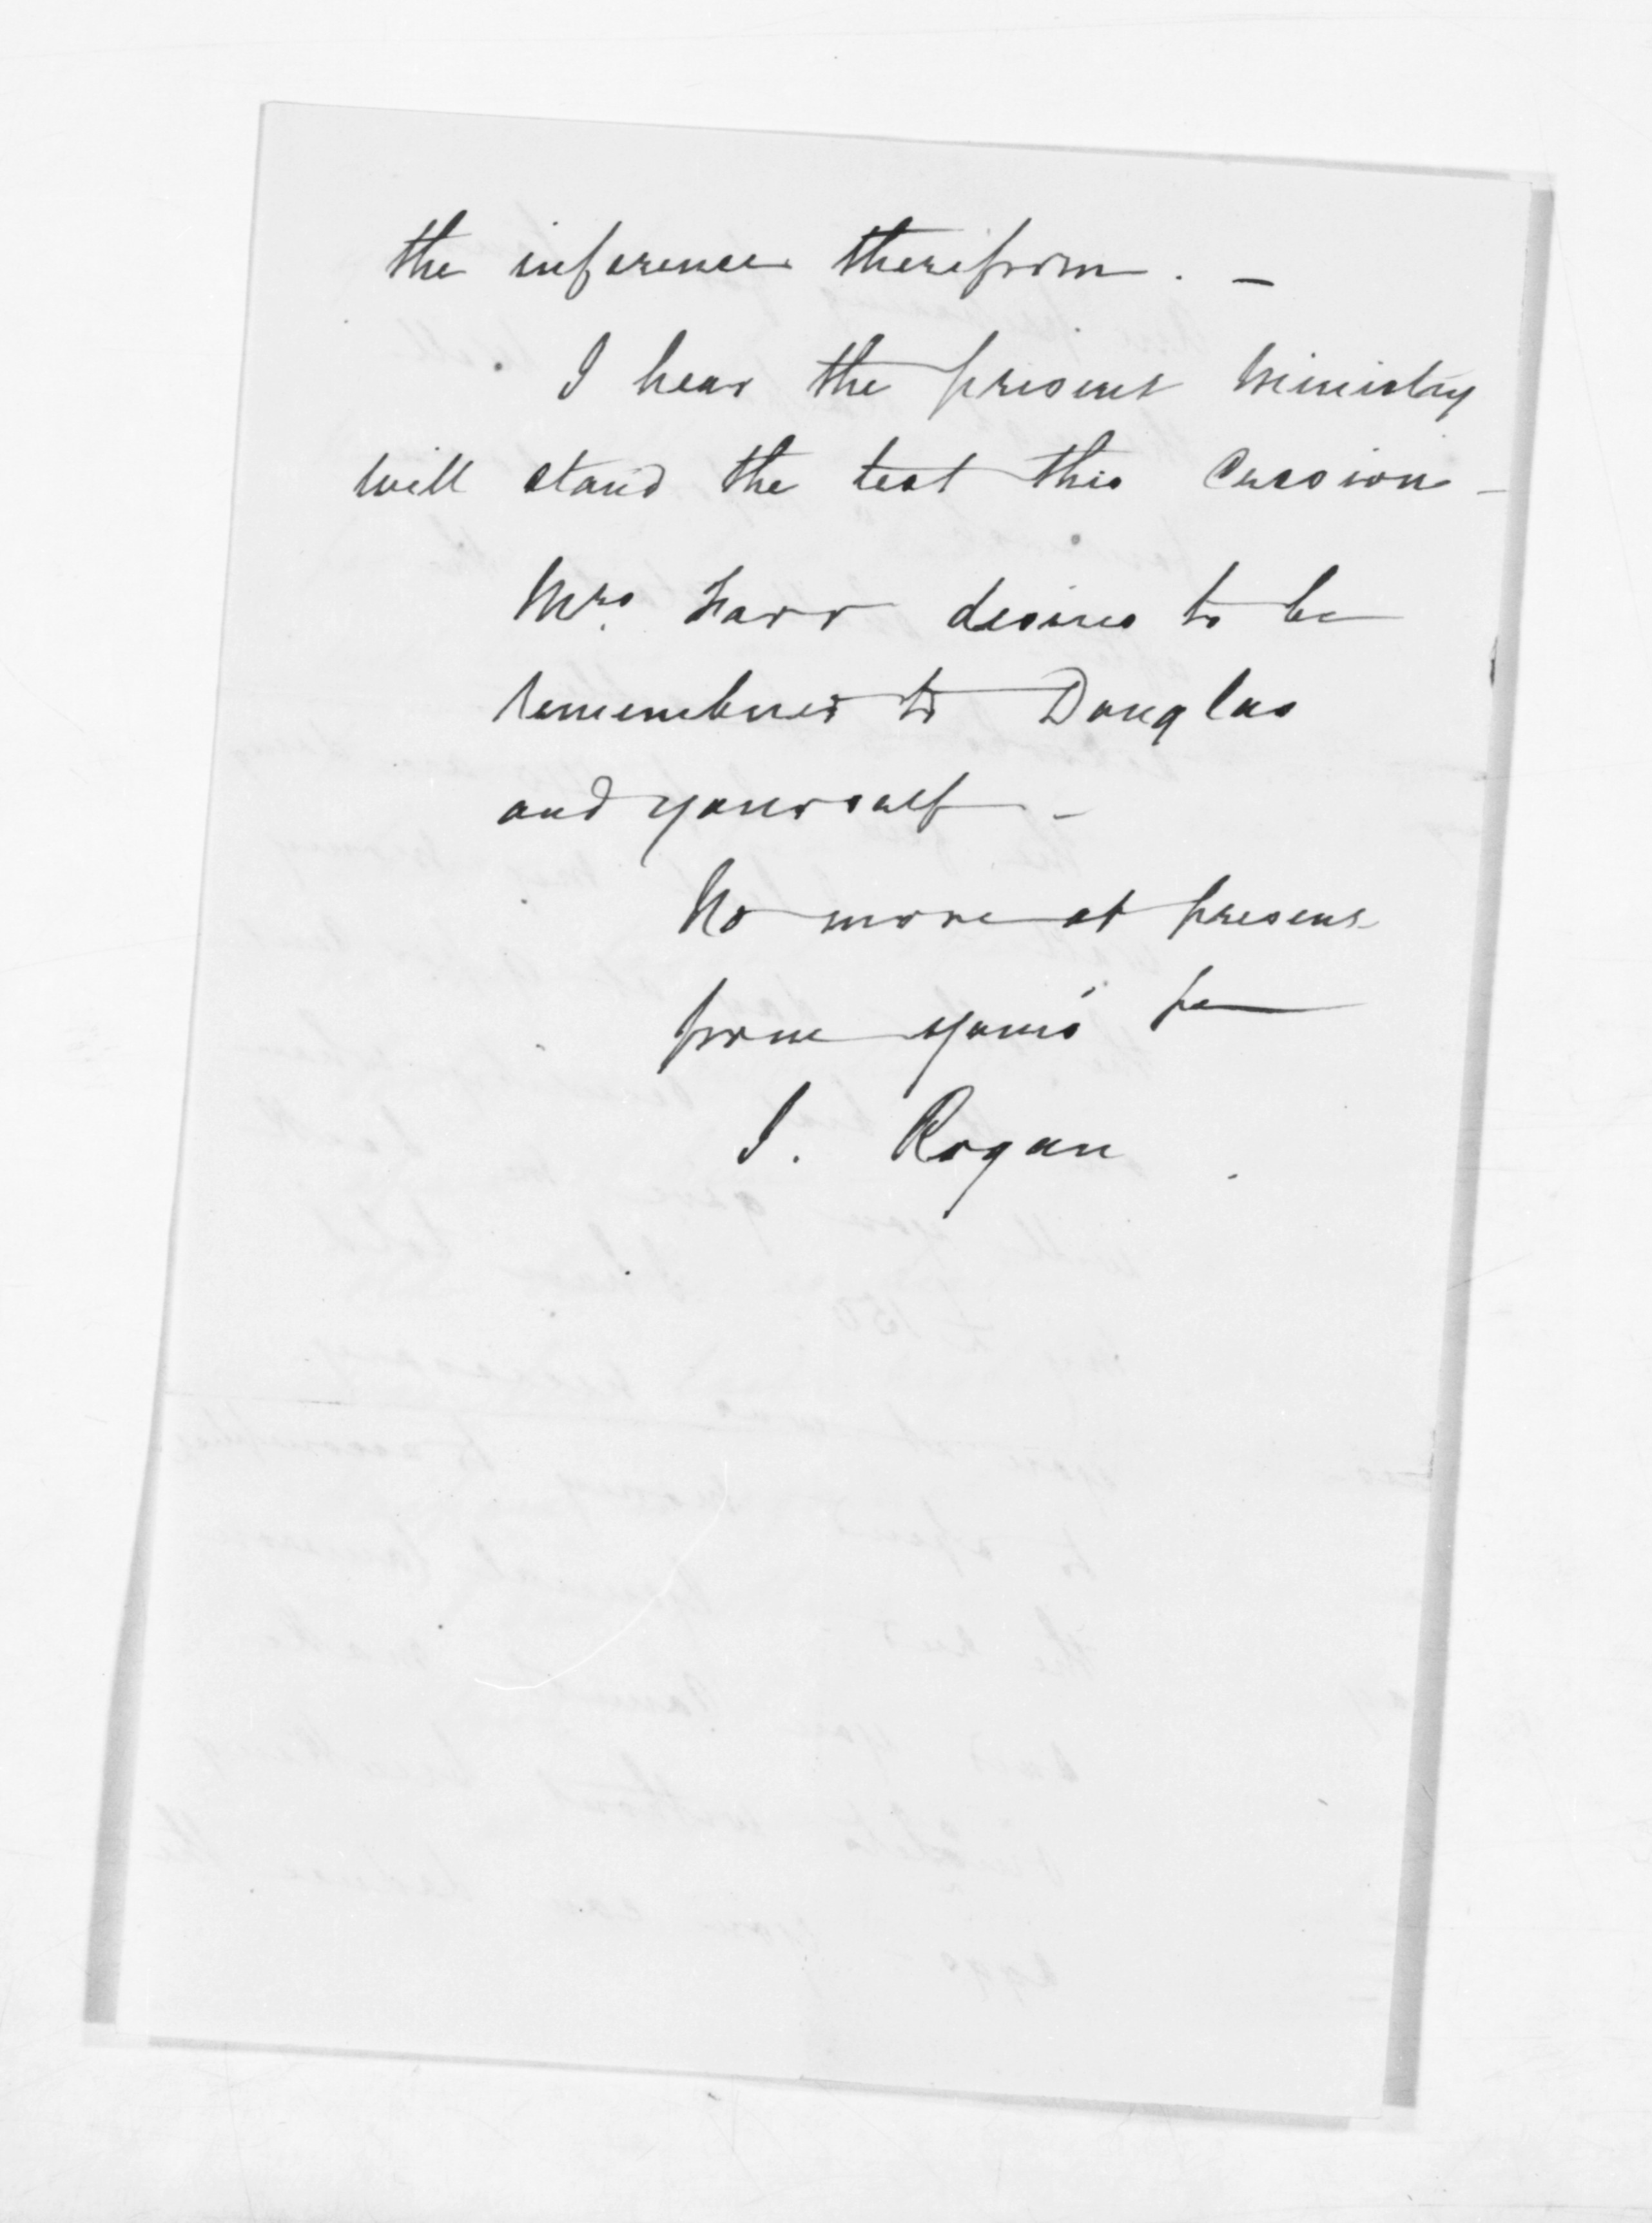 the inference therefrom. -
I hear the present Ministry
will stand the test this Session -
Mrs. Farr desires to be
remembered to Douglas
and yourself -
No more at present
from yours
J. Rogan